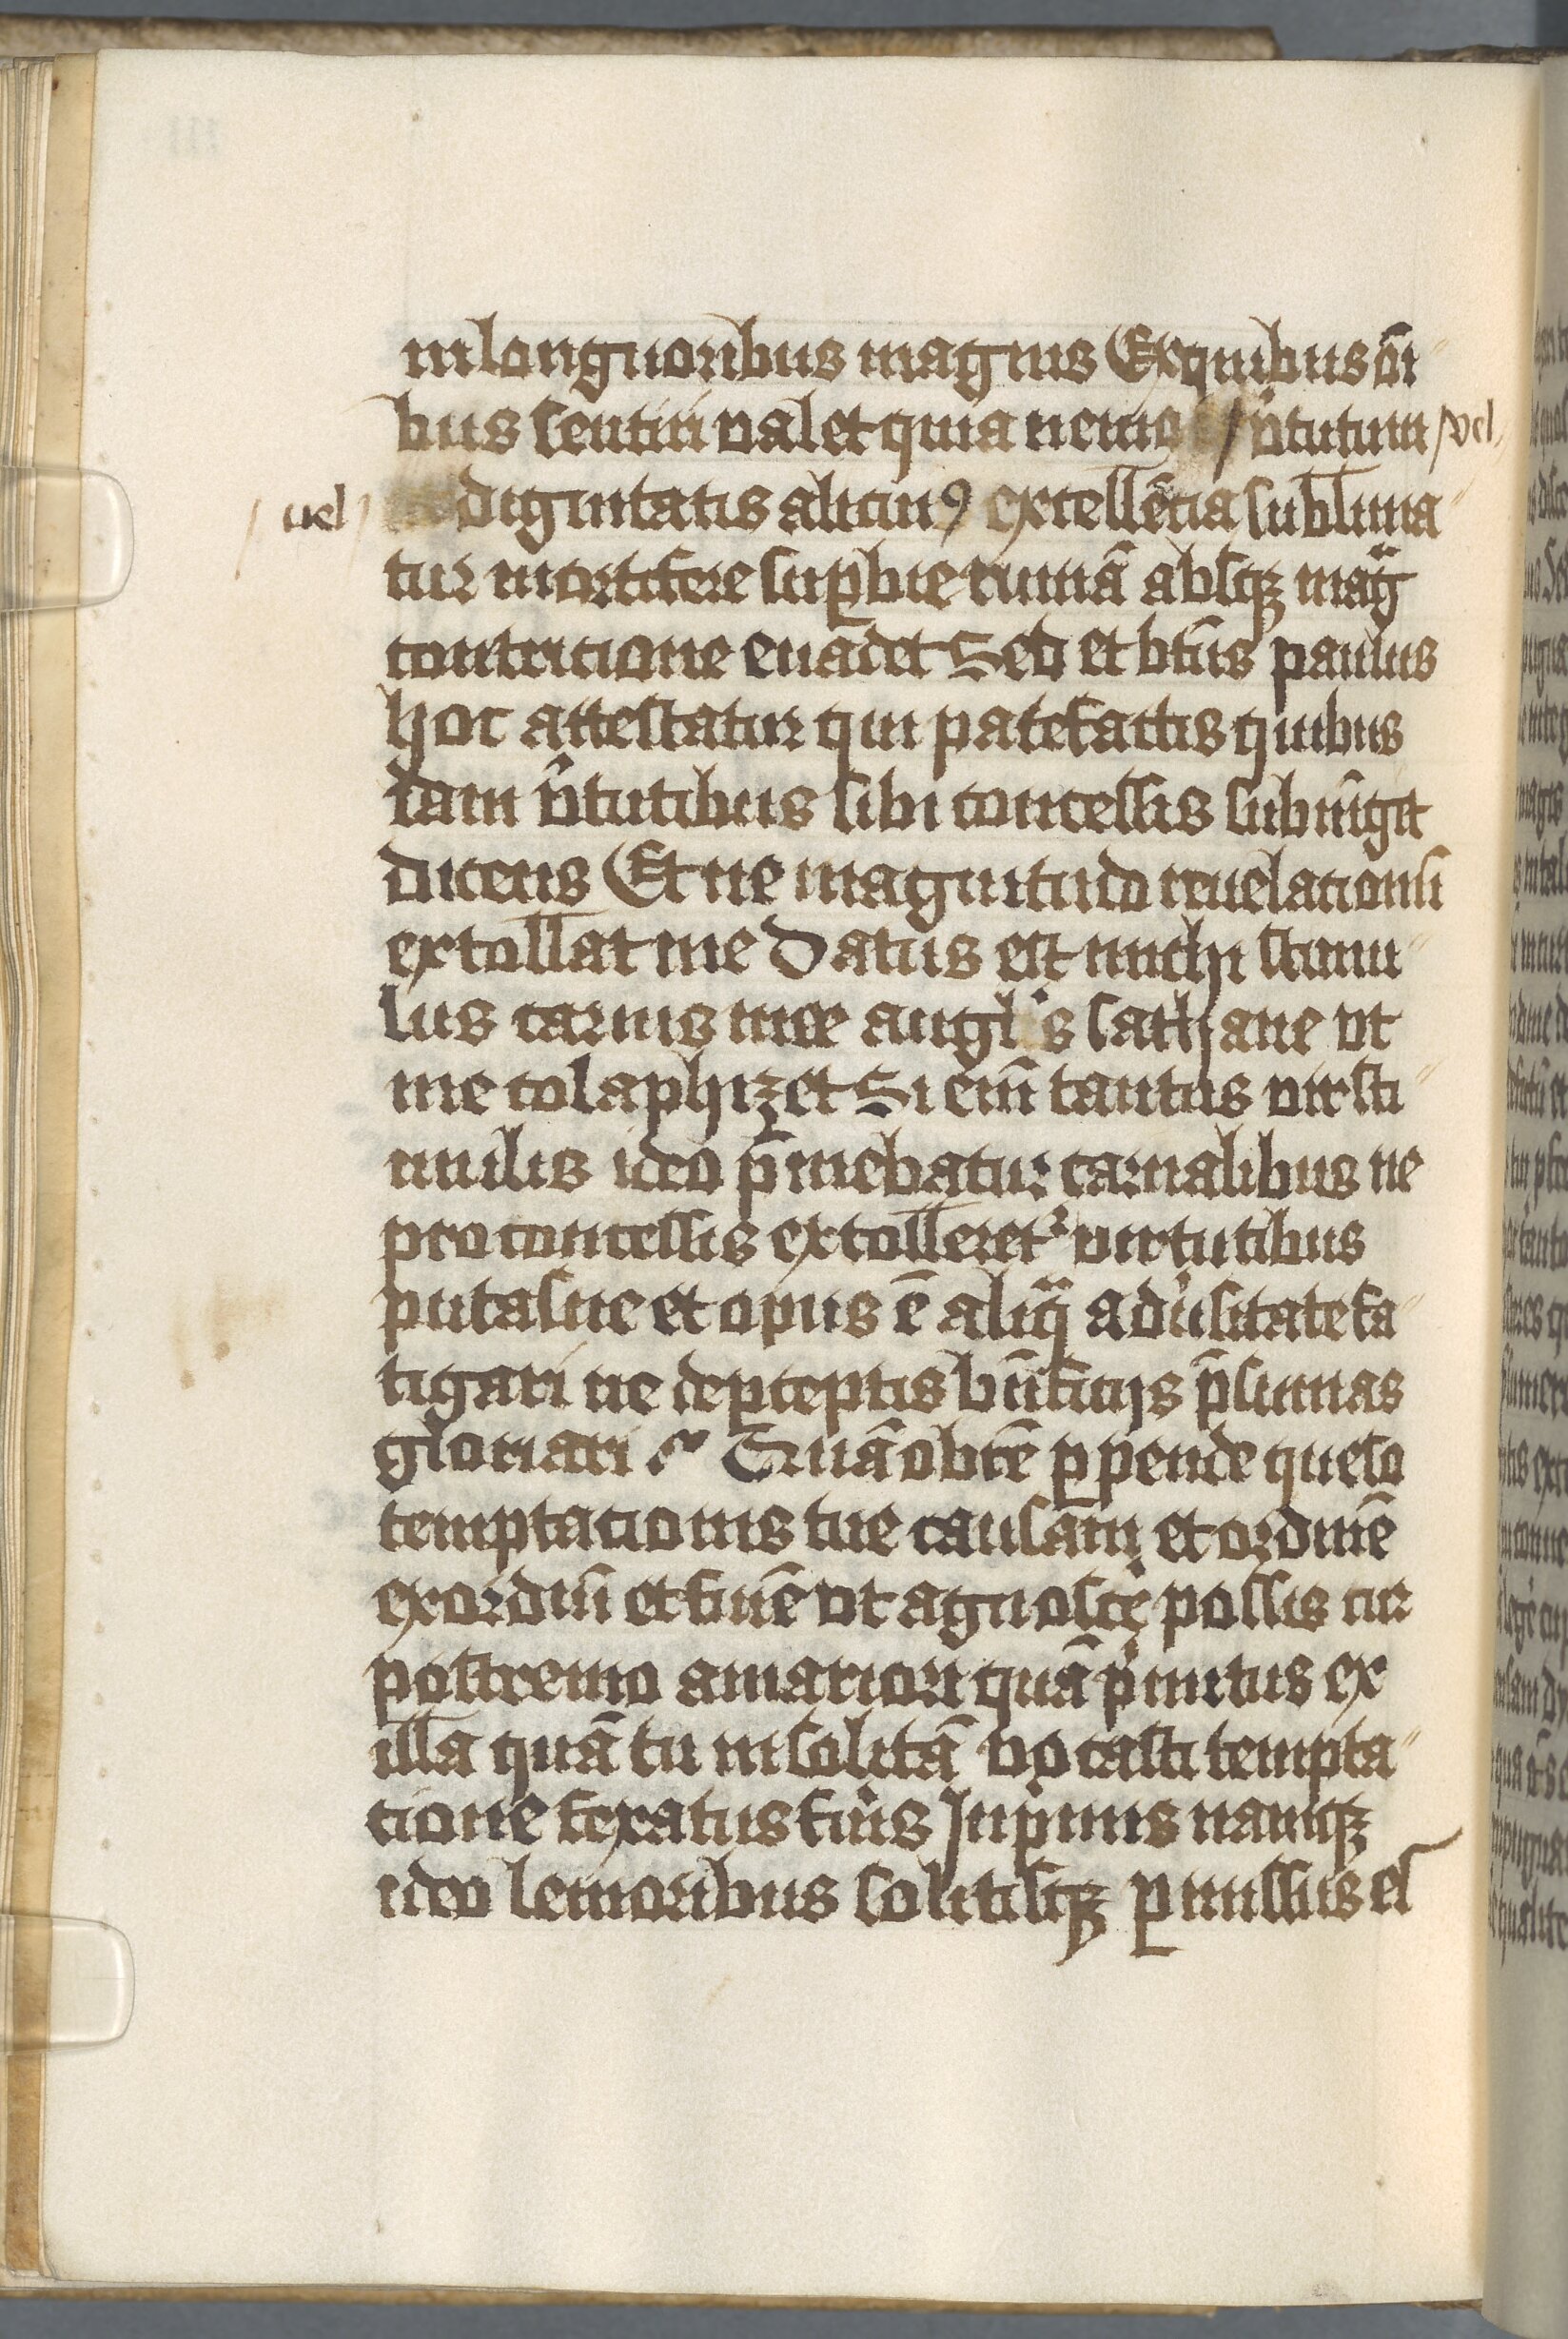 in longuoribus magnis Ex quibus oī
bus sentiri valet quia nemo v̾tutum vel
uel dignitatis alicuiꝰ excellētia sublima
tur mortifere suꝑbie ruinā absqꝫ mag̈
contricione euadet Sed et bt̄us paulus
hoc attestatur qui patefactis quibus
dam v̾tutibus sibi concessis subiūgit
dicens Et ne magnitudo reuelationū
extollat me Datus est michi stimu
lus carnis mee angl̾s sathane vt
me colaphizet Si em̄ tantus vir sti
mulis ideo p̄mebatur carnalibus ne
pro concessis extolleret᷑ virtutibus
putasne et opus ē aliq̈ adu̾sitate fa
tigari ne de ꝑceptis bn̄ficijs p̄sumas
gloriari Quāobrē ꝑpende queso
temptacionis tue causam et ordinē
exordiū et finē vt agnosce̾ possis cur
postremo amariori quā p̾mitus ex
illa quā tu insolitā vocasti tempta
tione fexatus fue̾is In p̾mis namqꝫ
ideo leuioribus solitisqꝫ ꝑmissus es